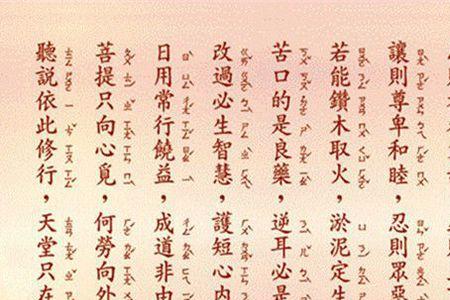 讓則尊卑和睦，忍則眾惡
若能鑽木取火，淤泥定生
苦口的是良藥，逆耳必是
改過必生智慧，護短心內
日用常行饒益，成道非由
菩提只向心覓，何勞向外
聽說依此修行，天堂只在